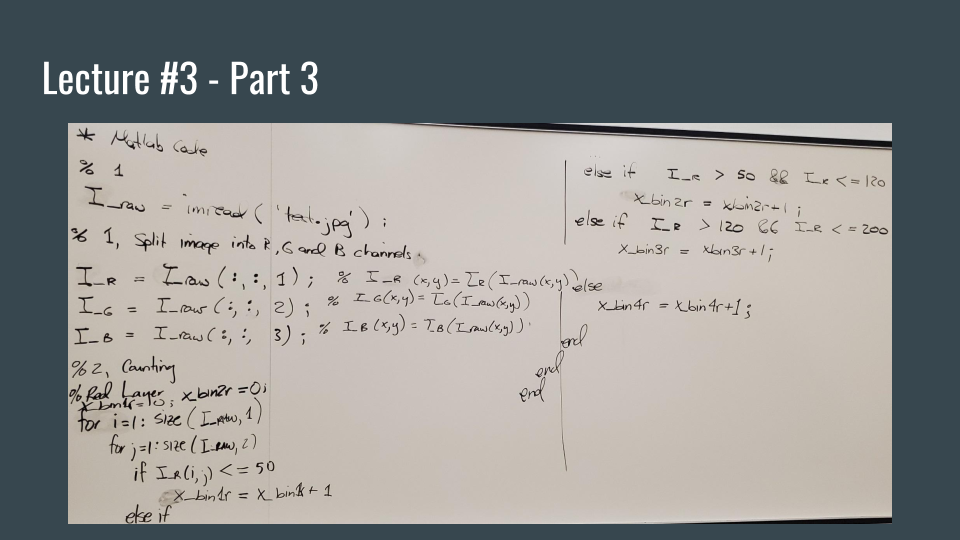 Lecture #3 - Part 3
* Matlab Code
% 1
I_raw = imread ( 'test.jpg' ) ;
% 1, Split image into R, G and B channels.
I_R = I_raw ( :, :, 1 ) ; % I_R (x,y) = I_R (I_raw(x,y))
I_G = I_raw ( :, :, 2 ) ; % I_G(x,y) = I_G (I_raw(x,y))
I_B = I_raw ( :, :, 3 ) ; % I_B (x,y) = I_B (I_raw(x,y))
% 2, Counting
% Red Layer, x_bin2r = 0;
x_bin1r = 0;
for i=1: size ( I_raw, 1 )
for j=1: size ( I_raw, 2 )
if I_R(i,j) <= 50
x_bin1r = x_bin1r + 1
else if
else if I_R > 50 && I_R <= 120
x_bin2r = x_bin2r+1 ;
else if I_R > 120 && I_R <= 200
x_bin3r = x_bin3r+1;
else
x_bin4r = x_bin4r+1;
end
end
end